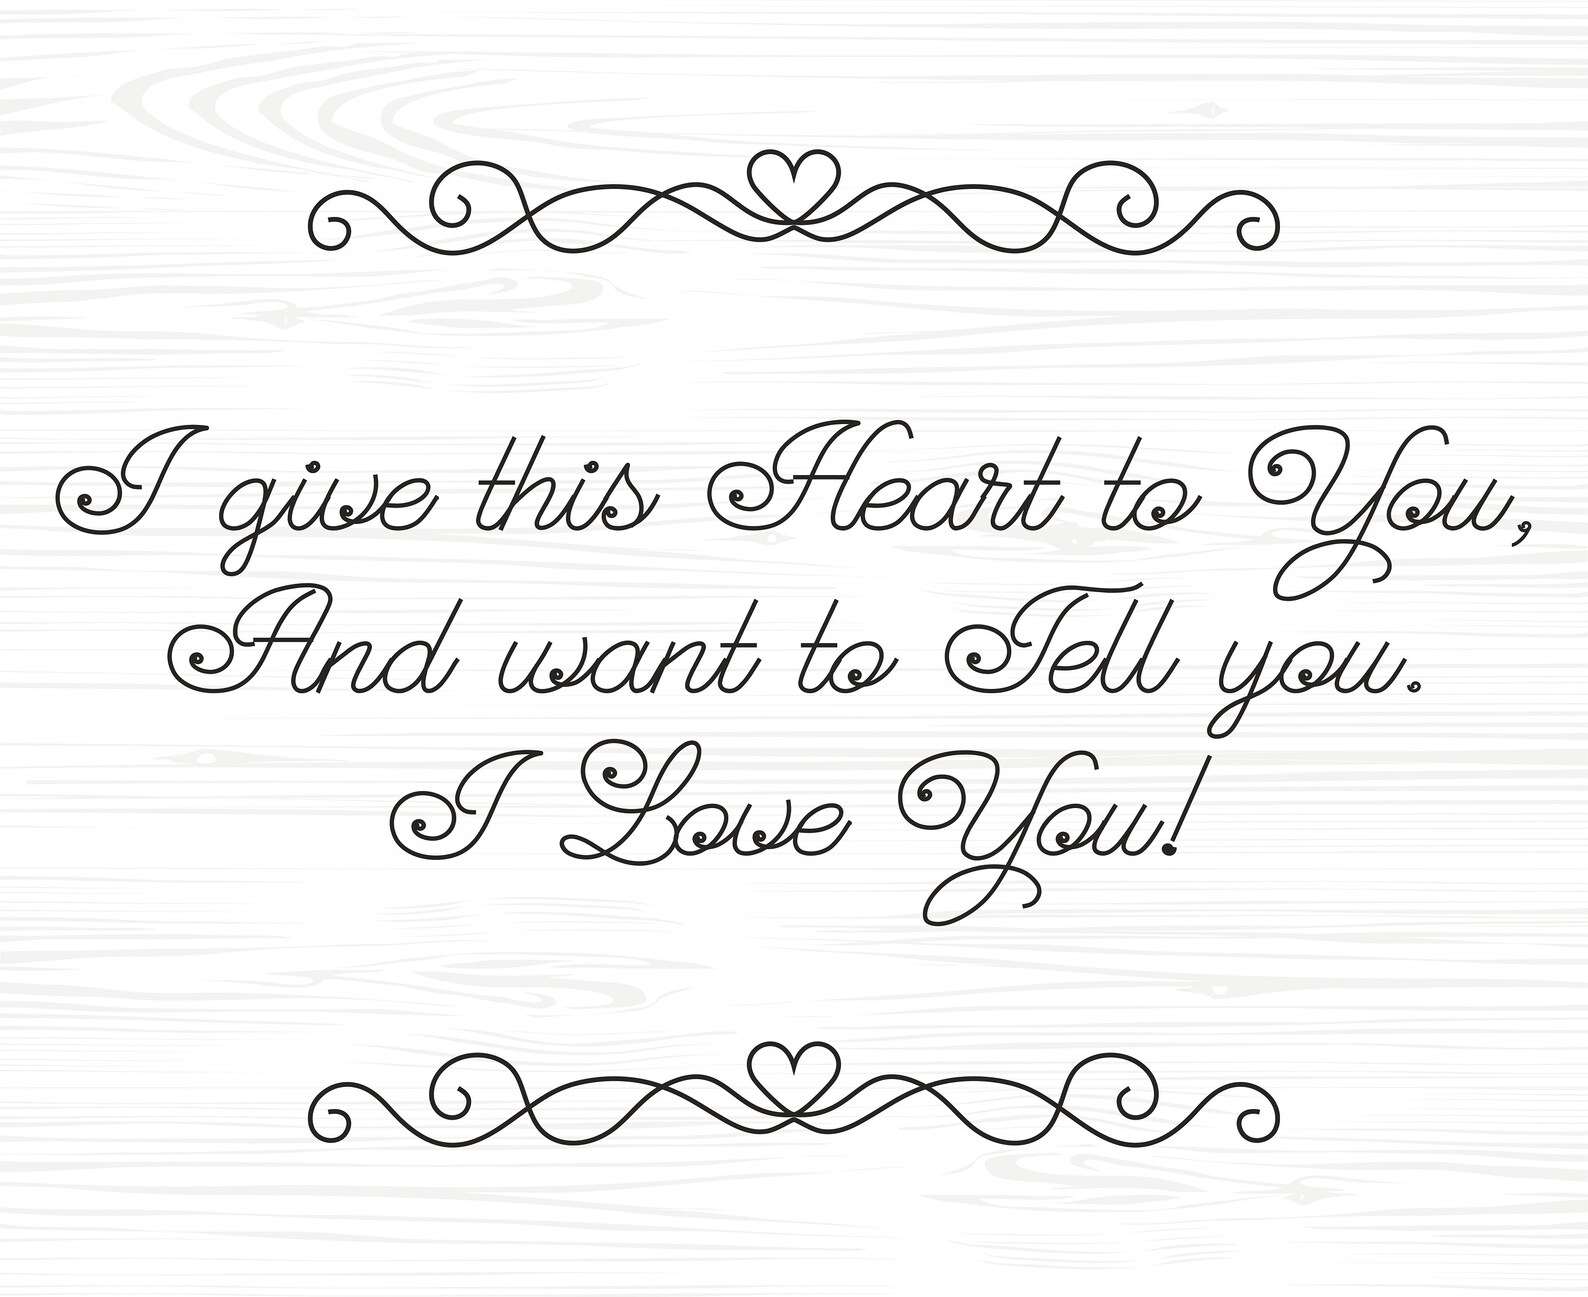 I give this Heart to You,
And want to Tell you.
I Love You!